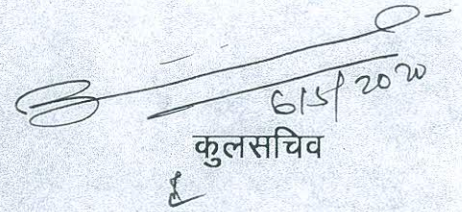 6/5/2020
कुलसचिव